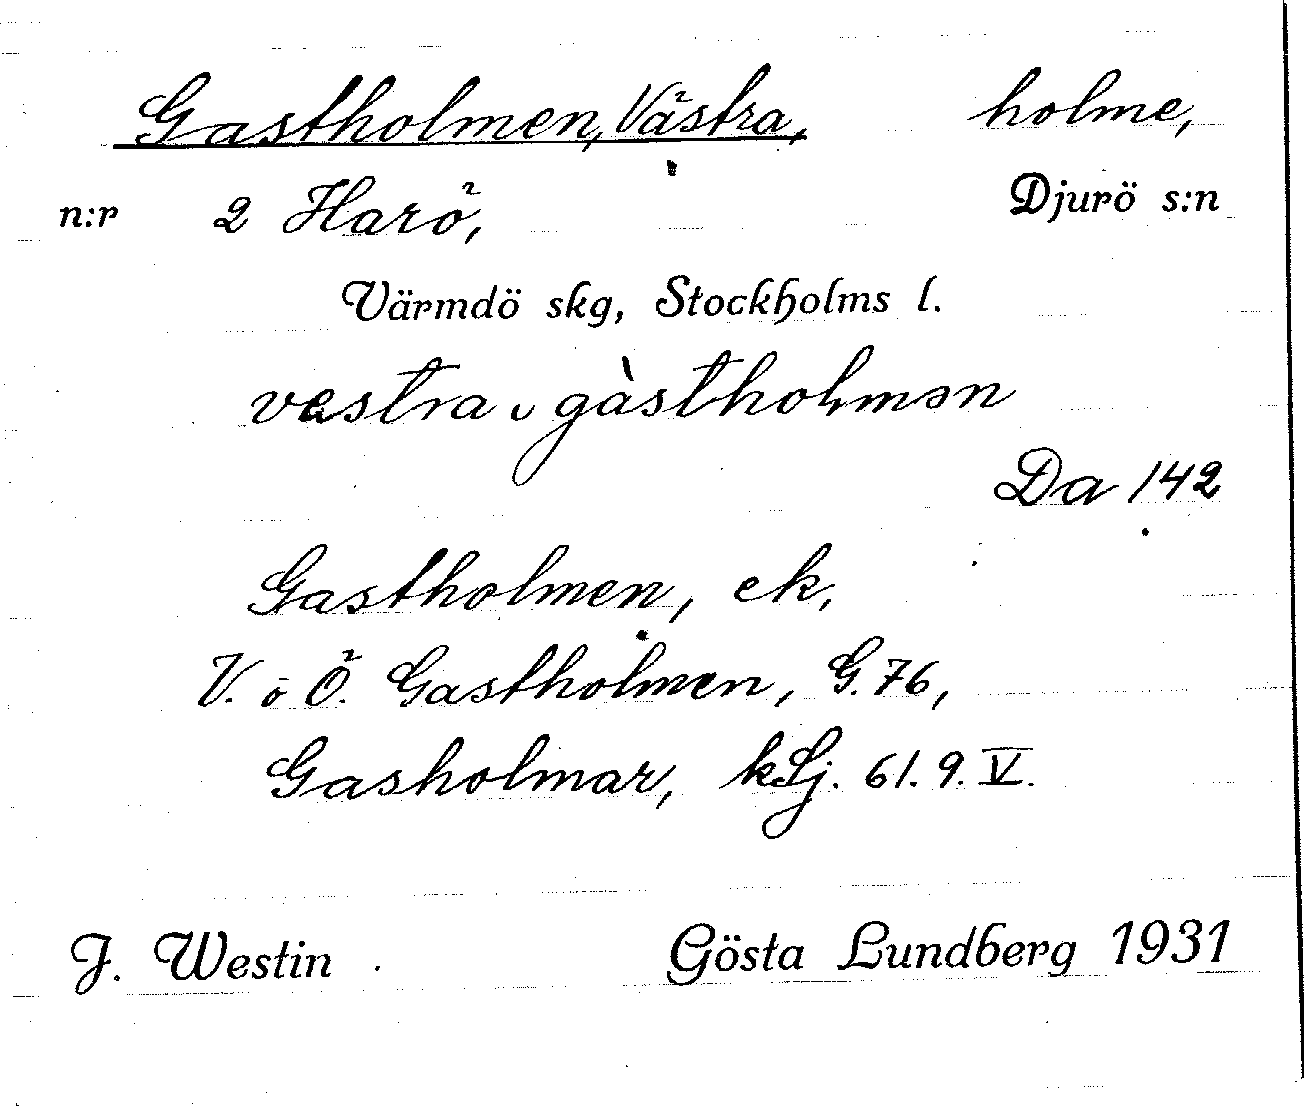 Gastholmen, Västra, holme,
n:r 2 Harö, Djurö s:n
Värmdö skg, Stockholms l.
vastra gàstholmən
Da 142
Gastholmen, ek,
V. o Ö. Gastholmen, G. 76,
Gasholmar, kSj. 61. 9. V.
J. Westin Gösta Lundberg 1931